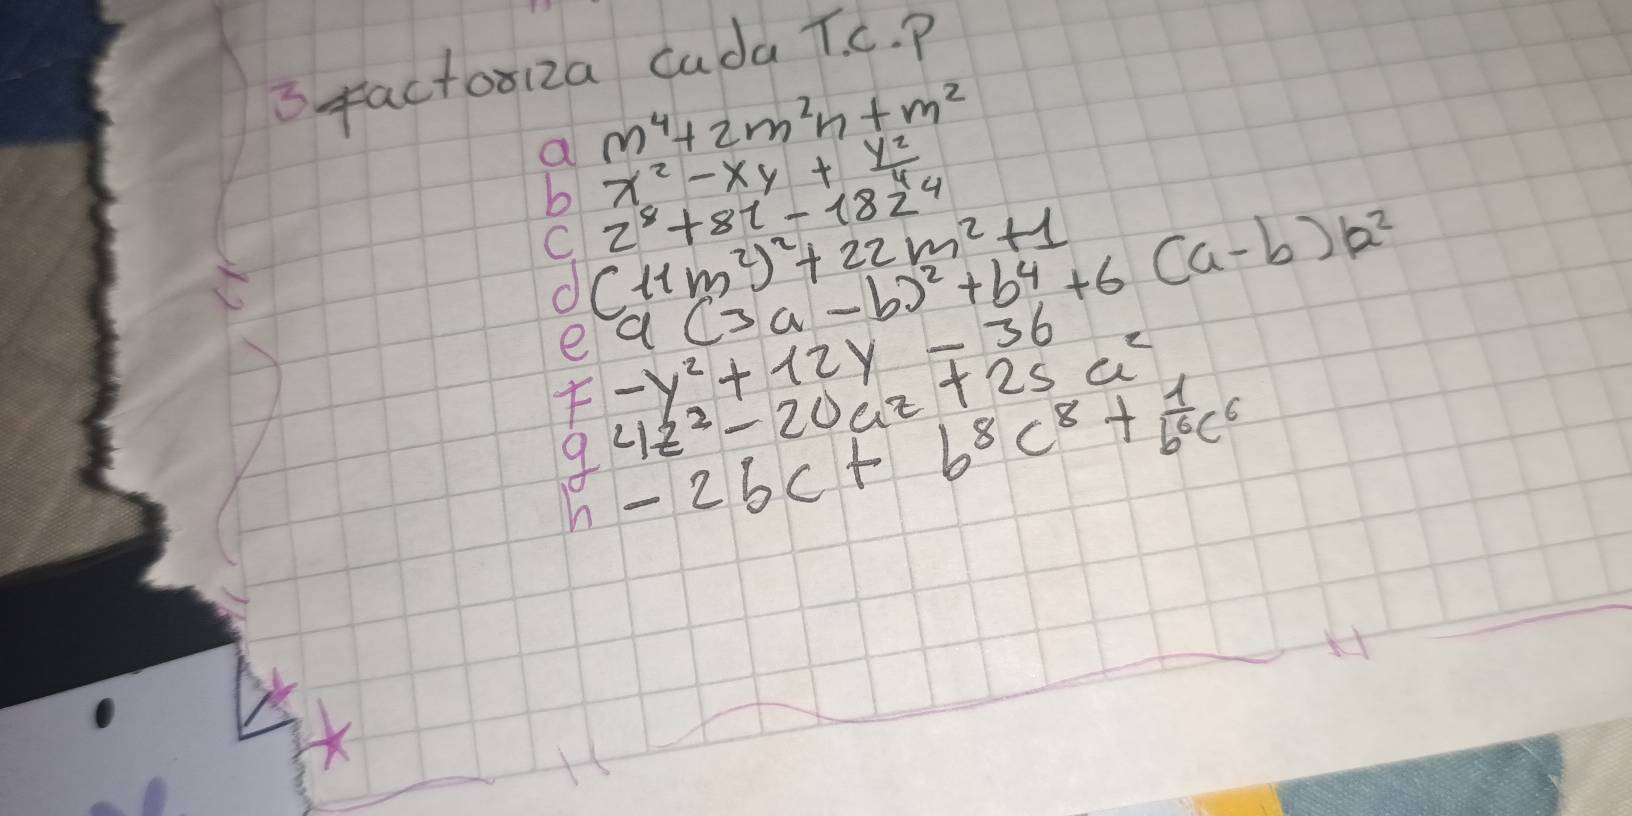 3 Factoriza cada T.C.P
a m⁴+2m²n+m²
b x²-xy+y²/4
c z⁸+81-18z⁴
d (11m²)²+22m²+1
e 9(3a-b)²+b⁴+6(a-b)b²
f -y²+12y-36
g 4z²-20az+25a²
h -2bc+b⁸c⁸+1/b⁶c⁶